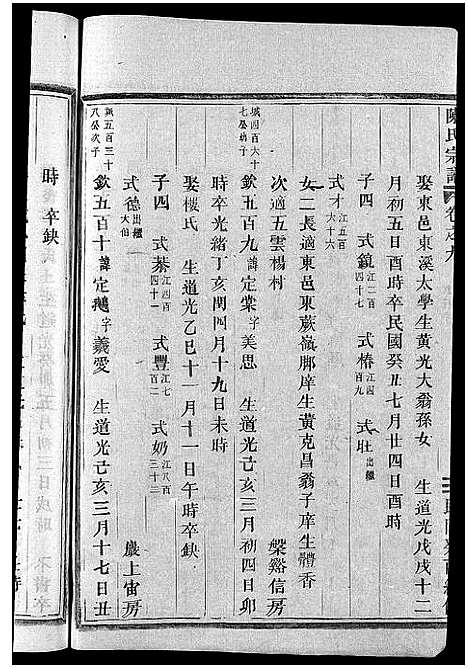 陳氏宗譜 卷之九
娶東邑東溪太學生黃光大翁孫女 生道光戊戌十二
月初五日酉時卒民國癸丑七月廿四日酉時
子四 式鏡 江二百四十七 式椿 江四百九 式壯 出繼
式才 江五百十六
女二長適東邑東蕨嶺腳庠生黃克昌翁子庠生體香
次適五雲楊村 槃谿信房
城四百六十七公幼子
欽五百九 諱定棠 字美思 生道光己亥三月初四日卯
時卒光緒丁亥閏四月十九日未時
娶樓氏 生道光乙巳十一月十一日午時卒缺
子四 式棻 江四百四十一 式豐 江七百二 式奶 江八百三十三
式德 出繼大伯 巖上宙房
城五百三十八公次子
欽五百十 諱定 字羲愛 生道光己亥三月十七日丑
時卒缺